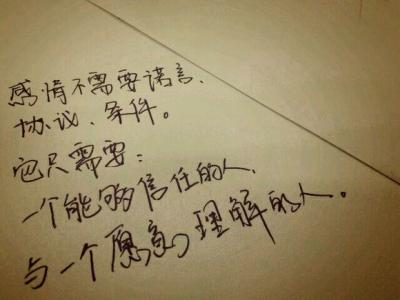 感情不需要诺言、
协议、条件。
它只需要：
一个能够信任的人，
与一个愿意理解的人。